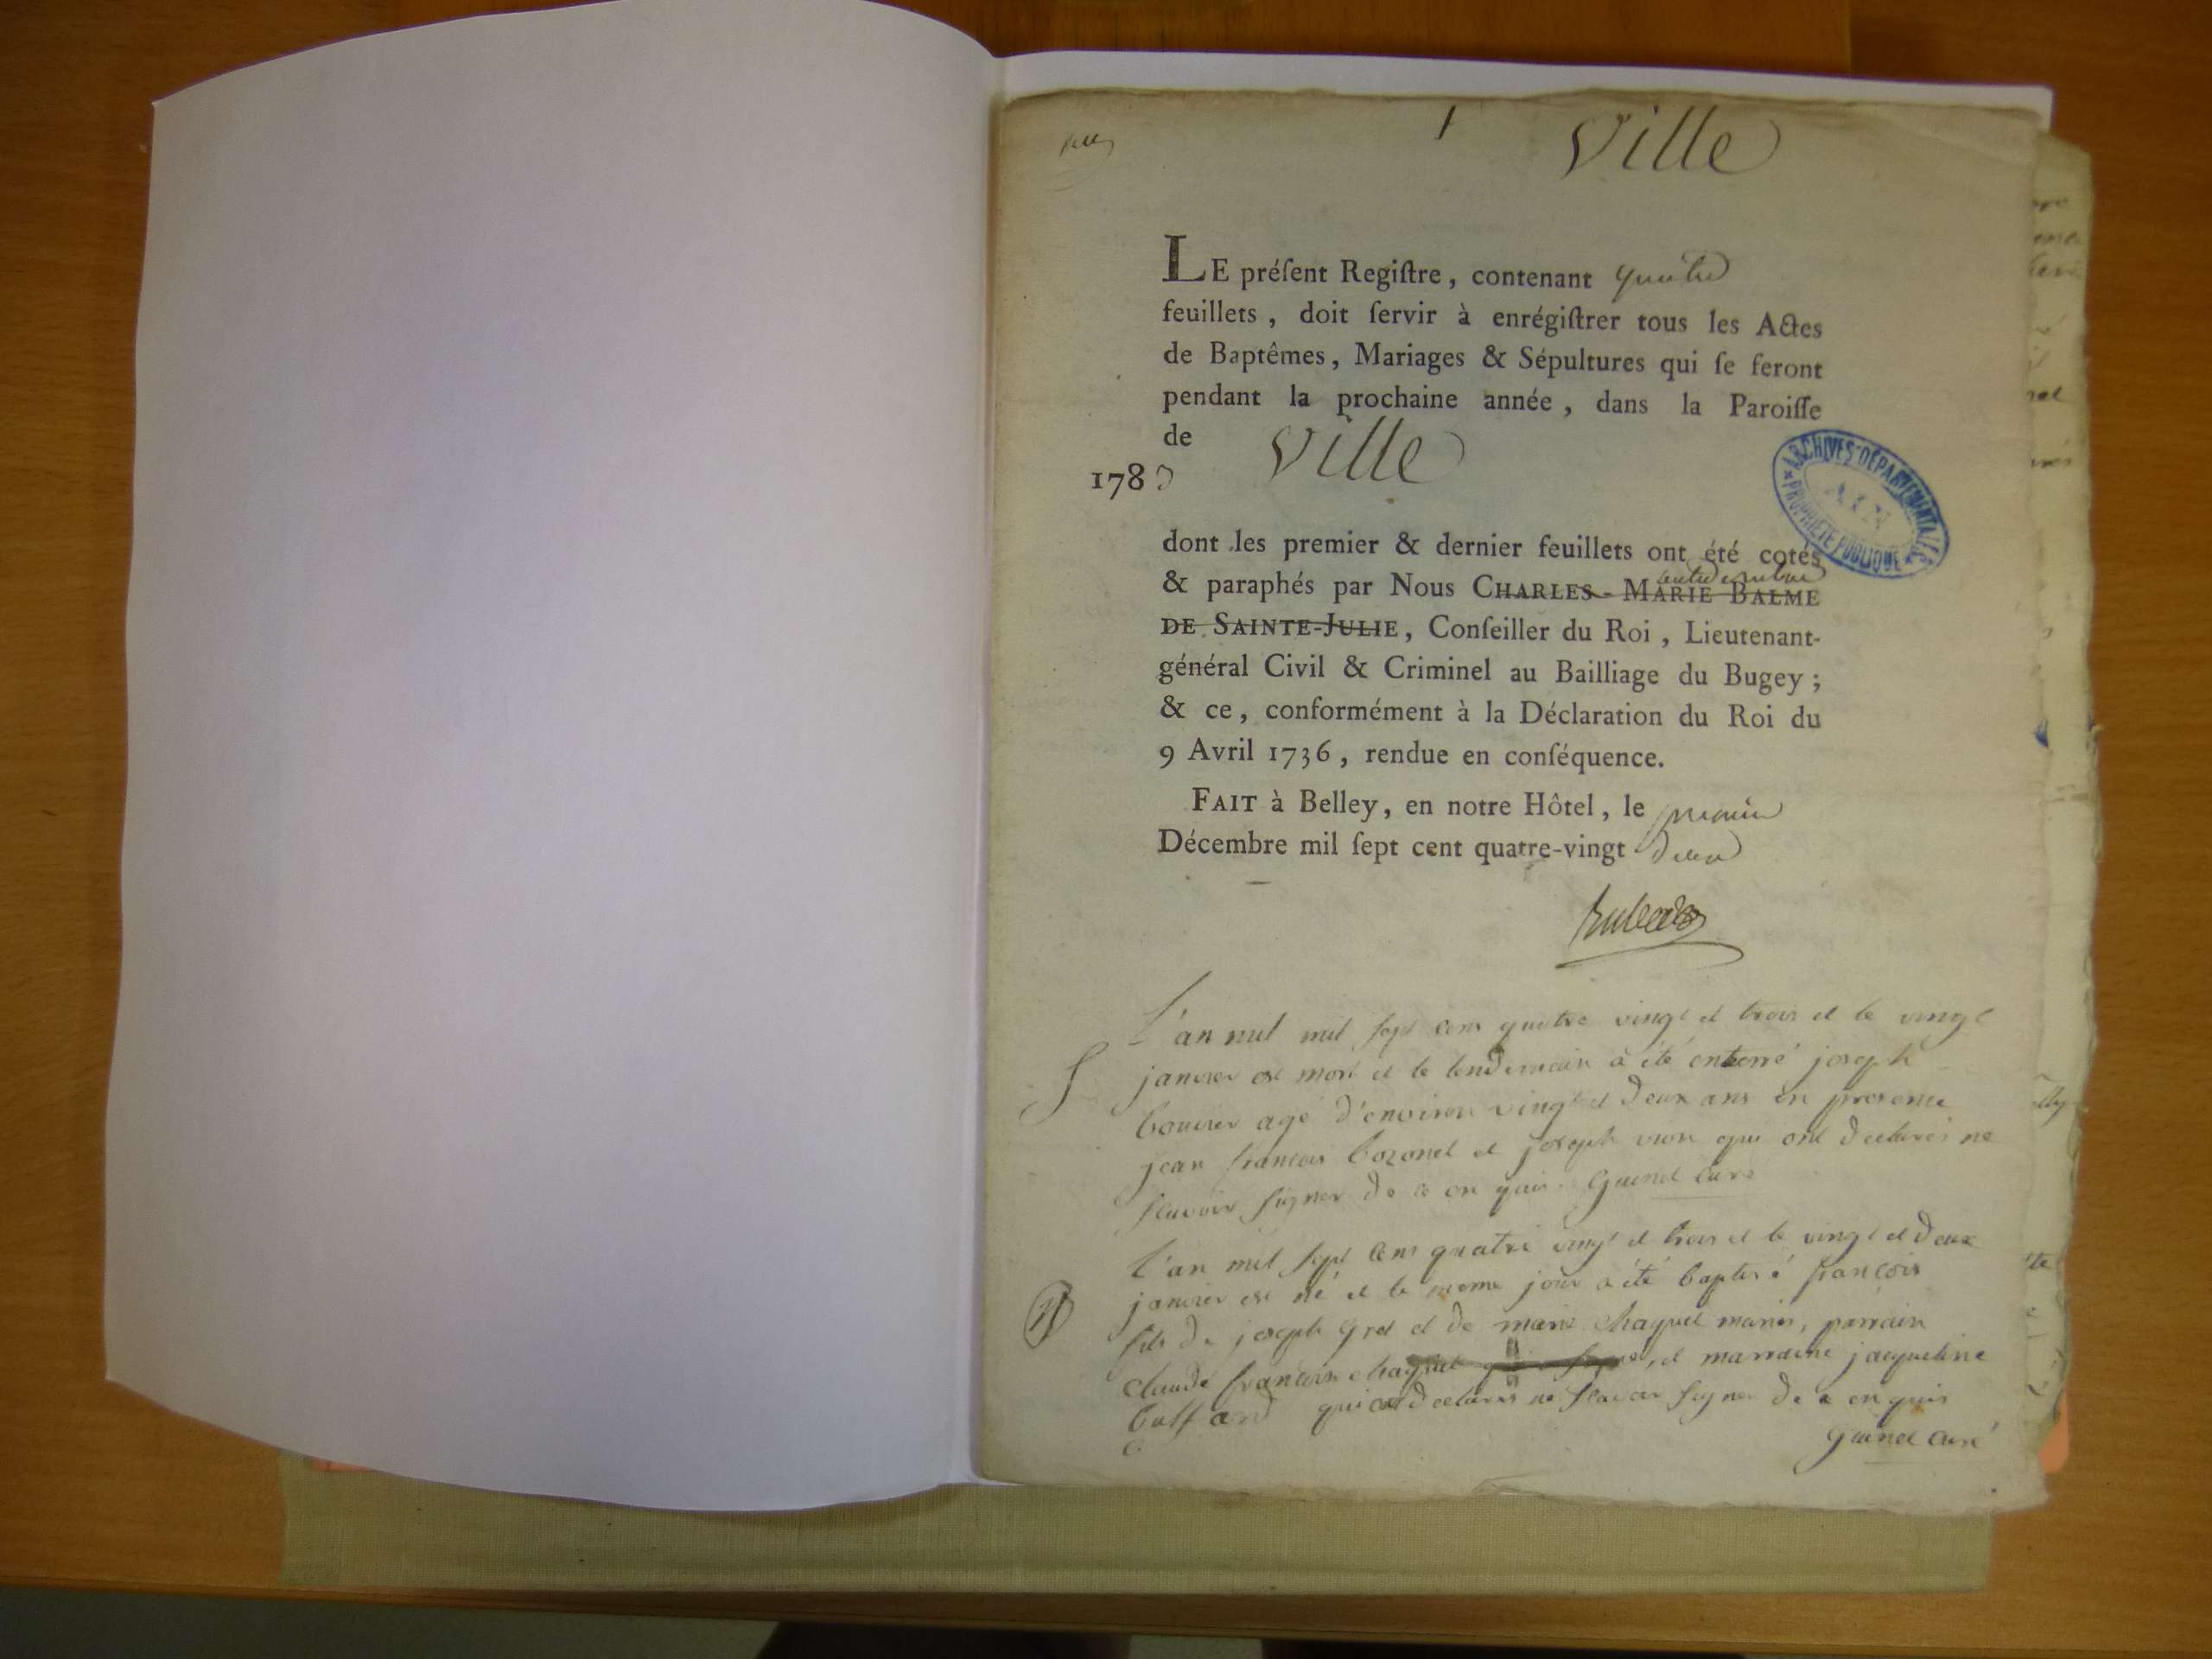 1 Ville
LE préſent Regiſtre, contenant quatre
feuillets, doit ſervir à enrégiſtrer tous les Actes
de Baptêmes, Mariages & Sépultures qui ſe feront
pendant la prochaine année, dans la Paroiſſe
de Ville
1783
ARCHIVES DÉPARTEMENTALES
AIN
PROPRIÉTÉ PUBLIQUE
dont les premier & dernier feuillets ont été cotés
& paraphés par Nous CHARLES-MARIE BALME
DE SAINTE-JULIE, Conſeiller du Roi, Lieutenant-
général Civil & Criminel au Bailliage du Bugey ;
& ce, conformément à la Déclaration du Roi du
9 Avril 1736, rendue en conſéquence.
FAIT à Belley, en notre Hôtel, le premier
Décembre mil ſept cent quatre-vingt deux
L'an mil mil sept cens quatre vingt et trois et le vingt
S janvier est mort et le lendemain a été enterré joseph
bouvier agé d'environ vingt et deux ans en presence
jean francois bozonet et joseph vion qui ont declarés ne
scavoir signer de ce enquis. Guinet curé
L'an mil sept cens quatre vingt et trois et le vingt et deux
janvier est né et le meme jour a été baptisé françois
N fils de joseph gret et de marie chaquet mariés, parrain
claude francois chaquet et marraine jacqueline
buffard qui ont declarés ne scavoir signer de ce enquis
Guinet curé